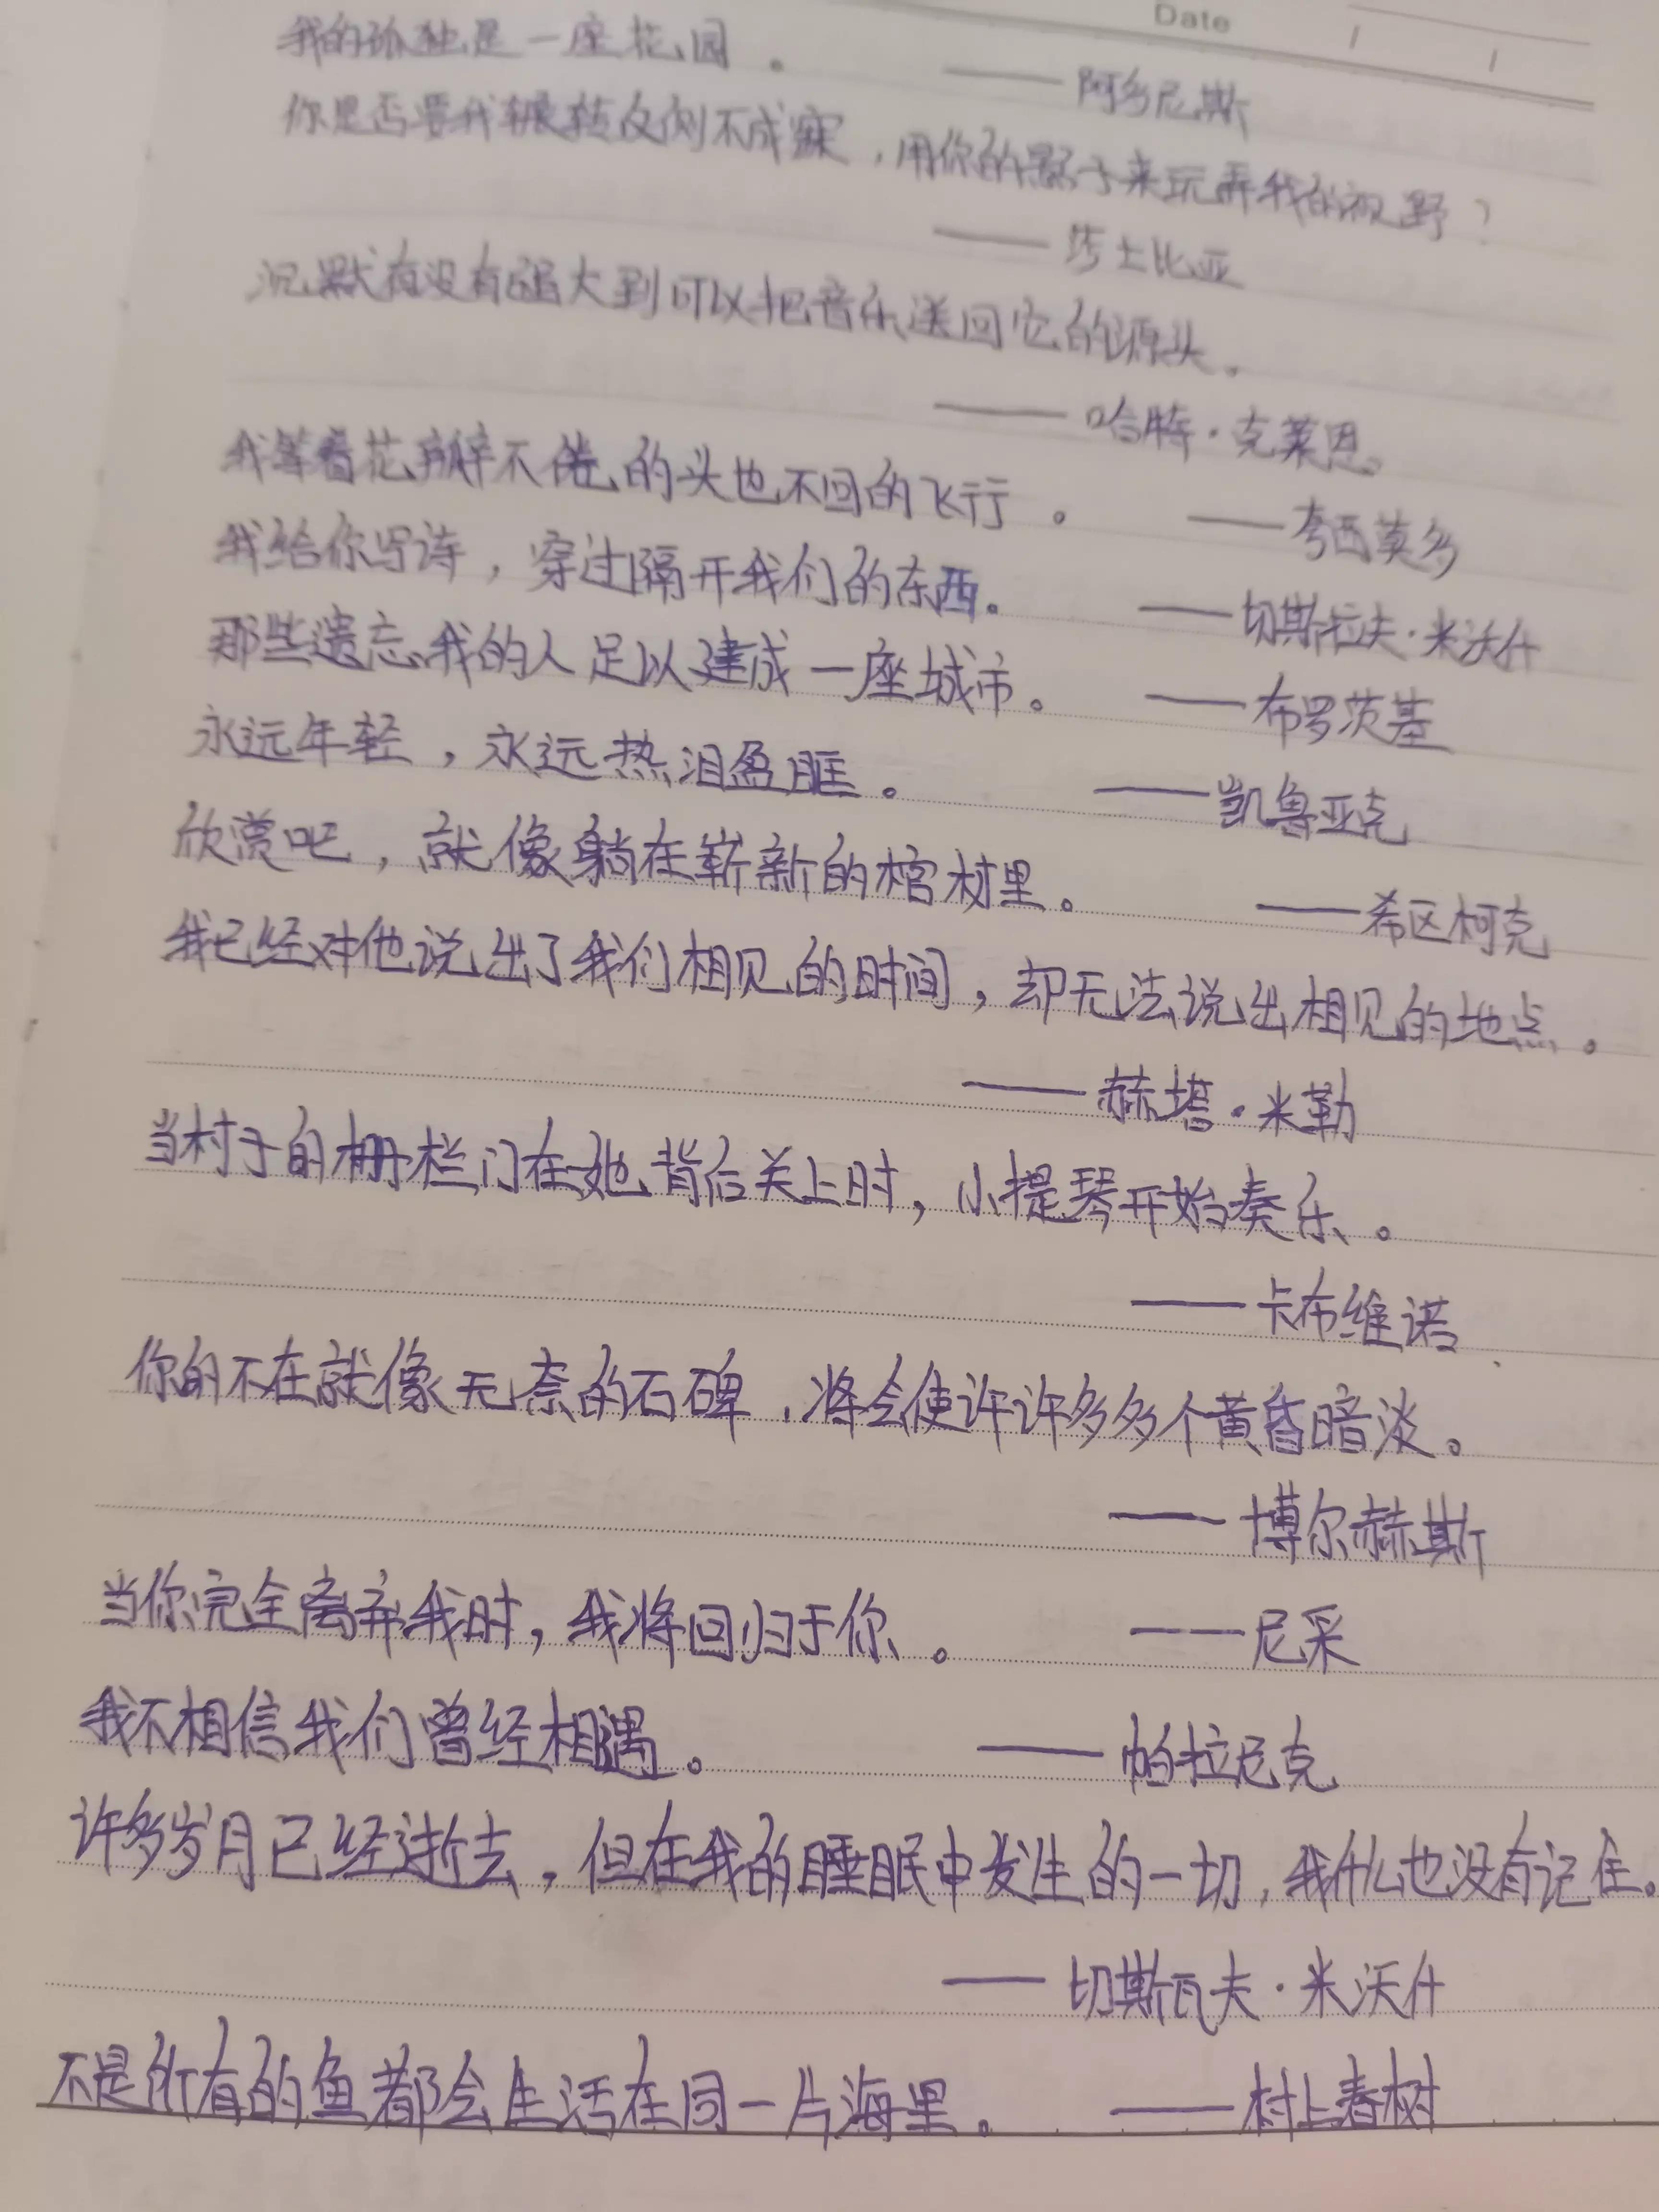 Date
我的孤独是一座花园。 ——阿多尼斯
你是否要我辗转反侧不成寐，用你的影子来玩弄我的视野？
——莎士比亚
沉默有没有强大到可以把音乐送回它的源头。
——哈特·克莱恩。
我等着花瓣不倦的头也不回的飞行。 ——夸西莫多
我给你写诗，穿过隔开我们的东西。 ——切斯拉夫·米沃什
那些遗忘我的人足以建成一座城市。 ——布罗茨基
永远年轻，永远热泪盈眶。 ——凯鲁亚克
欣赏吧，就像躺在崭新的棺材里。 ——希区柯克
我已经对他说出了我们相见的时间，却无法说出相见的地点。
——赫塔·米勒
当村子的栅栏门在她背后关上时，小提琴开始奏乐。
——卡布维诺
你的不在就像无奈的石碑，将会使许许多多个黄昏暗淡。
——博尔赫斯
当你完全离弃我时，我将回归于你。 ——尼采
我不相信我们曾经相遇。 ——帕拉尼克
许多岁月已经逝去，但在我的睡眠中发生的一切，我什么也没有记住。
——切斯瓦夫·米沃什
不是所有的鱼都会生活在同一片海里。 ——村上春树